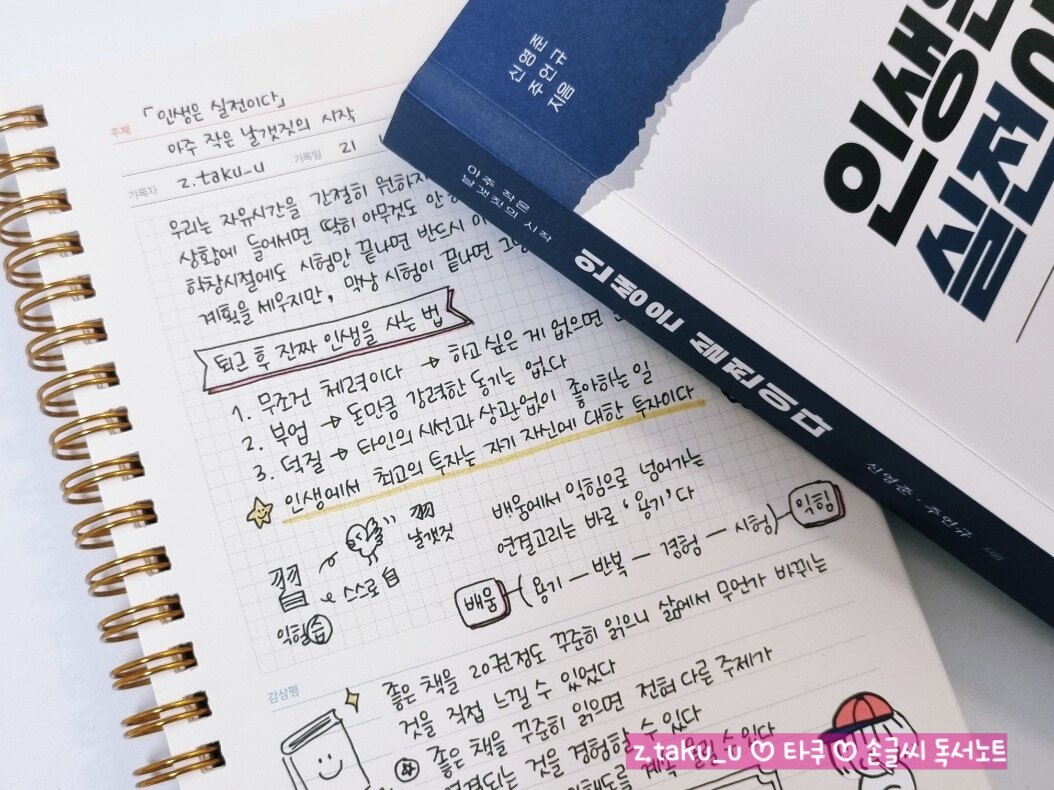 주제 「인생은 실전이다」
아주 작은 날갯짓의 시작
기록자 z.taku_u 기록일 21
우리는 자유시간을 간절히 원하지
상황에 들어서면 딱히 아무것도 안
학창시절에도 시험만 끝나면 반드시
계획을 세우지만, 막상 시험이 끝나면
퇴근 후 진짜 인생을 사는 법
1. 무조건 체력이다 → 하고 싶은 게 없으면
2. 부업 → 돈만큼 강력한 동기는 없다
3. 덕질 → 타인의 시선과 상관없이 좋아하는 일
인생에서 최고의 투자는 자기 자신에 대한 투자이다
날갯짓
스스로 自
익힐 習
배움에서 익힘으로 넘어가는
연결고리는 바로 '용기'다
배움 (용기 — 반복 — 경험 — 시험) 익힘
감상평
좋은 책을 20권정도 꾸준히 읽으니 삶에서 무언가 바뀌는
것을 직접 느낄 수 있었다
좋은 책을 꾸준히 읽으면 전혀 다른 주제가
연결되는 것을 경험할 수 있다
계속 올릴 수 있다
신영준
주언규
지음
인생은
실전이
아주 작은
날갯짓의 시작
인생은 실전이다
신영준·주언규 지음
z.taku_u ♡ 타쿠 ♡ 손글씨 독서노트